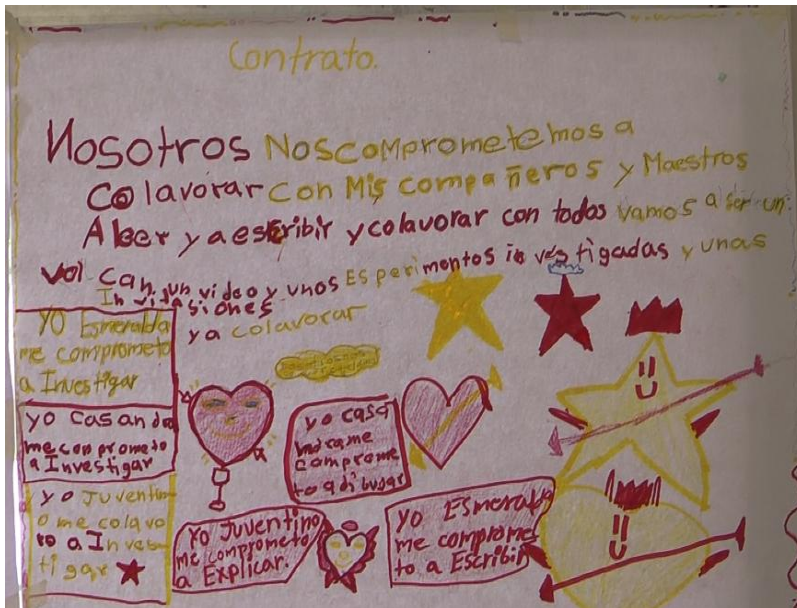 Contrato.
Nosotros Noscomprometemos a
Colavorar con Mis compañeros y Maestros
A leer y a escribir y colavorar con todos vamos a ser un
vol can, un video y unos Esperimentos investigadas y unas
Invitasiones
y a colavorar
YO Esmeralda
me comprometo
a Investigar
yo Casandra
me comprometo
a Investigar
yo Juventin
o me colavo
ro a Inves
tigar
yo Casa
ndrame
comprome
to a dibujar
Yo Juventino
me comprometo
a Explicar.
YO Esmeralda
me comprome
to a Escribir